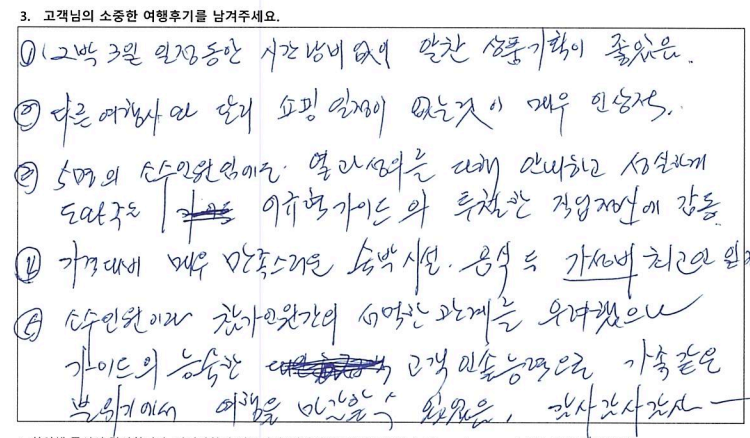 3. 고객님의 소중한 여행후기를 남겨주세요.
① 2박 3일 일정동안 시간낭비 없이 알찬 상품기획이 좋았음.
② 다른 여행사와 달리 쇼핑 일정이 없는것이 매우 인상적.
③ 5명의 소수인원임에도 열과성의를 다해 안내하고 성실하게
도와주는 이규혁가이드의 투철한 직업정신에 감동
④ 가격대비 매우 만족스러운 숙박시설. 음식 등 가성비 최고인
⑤ 소수인원이라 참가인원간의 서먹한 관계를 우려했으나
가이드의 능숙한 고객인솔능력으로 가족같은
분위기에서 여행을 만끽할 수 있었음. 감사감사감사